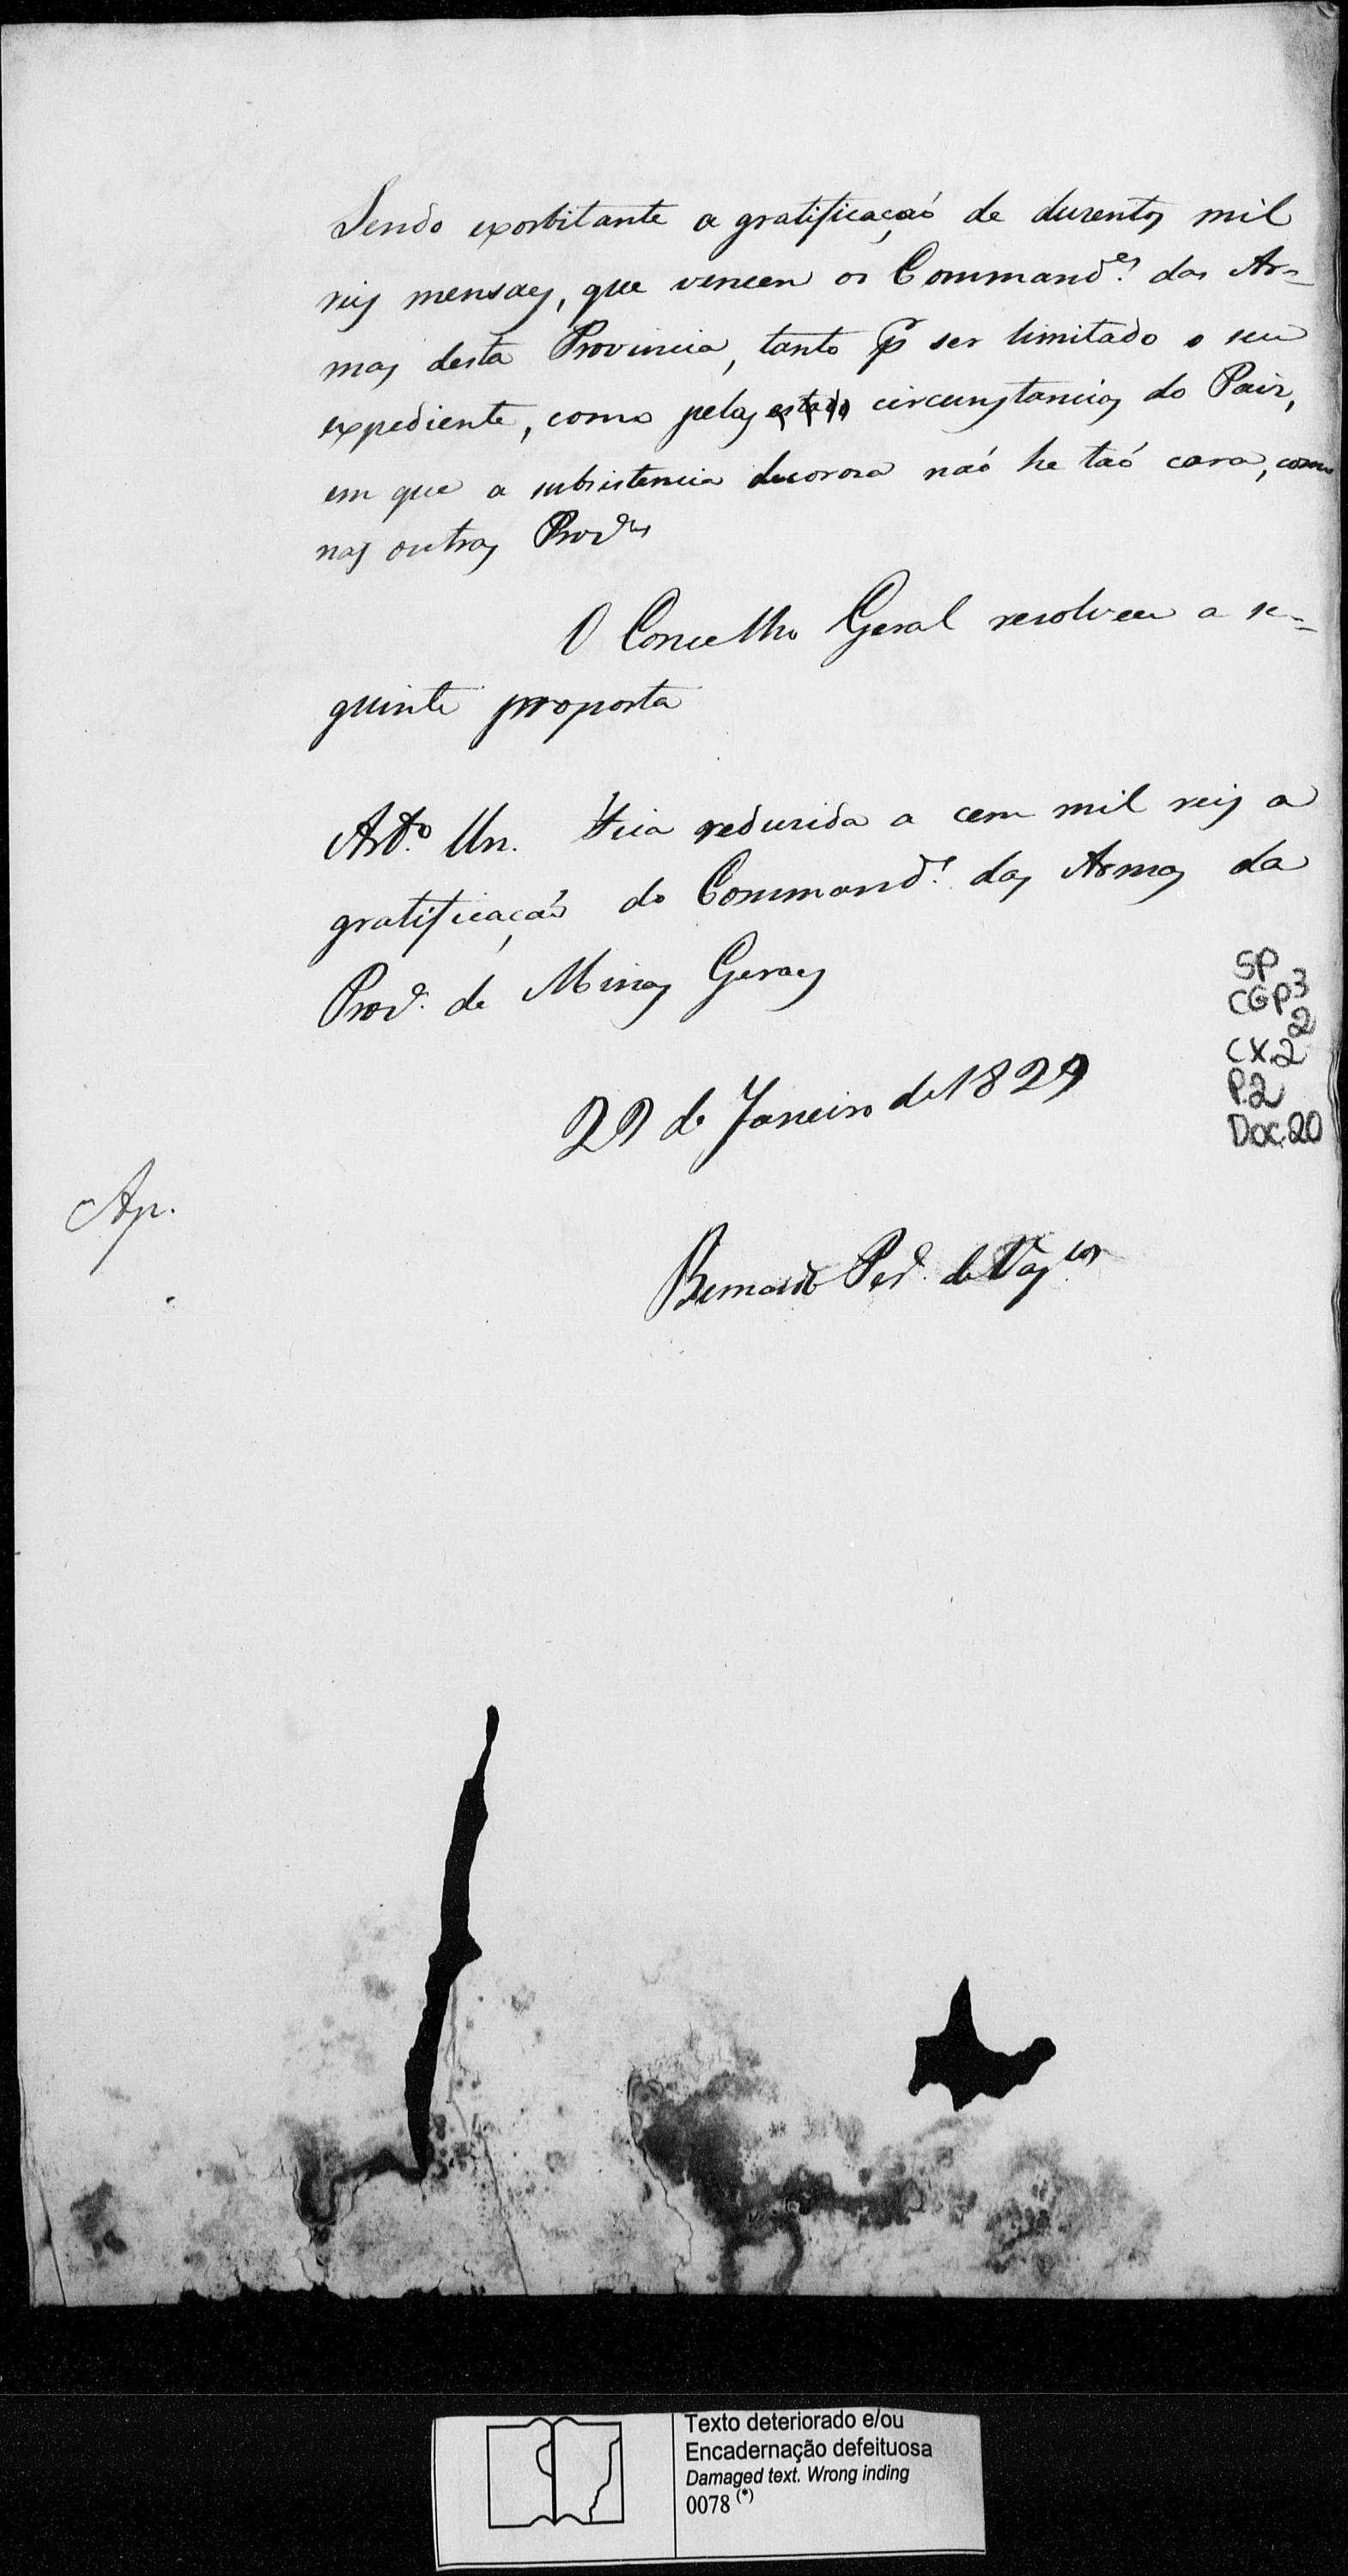 Sendo exorbitante a gratificação de duzentos mil
reis mensaes, que vencem os Command.es das Ar=
mas desta Provincia, tanto p ser limitado o seu
expediente, como pelas estado circunstancias do Paiz,
em que a subsistencia decorosa não he tão cara, como
nas outras Prov.as
O Concelho Geral resolveu a se=
guinte proposta
Art.o Un. Fica reduzida a cem mil reis a
gratificação do Command.e das Armas da
Prov.a de Minas Geraes
29 de Janeiro de 1829
Ap.
Bernardo Per.a de Vas.cos
SP
CGP3
2
CX.2
P.2
Doc.20
Texto deteriorado e/ou
Encadernação defeituosa
Damaged text. Wrong inding
0078 (*)